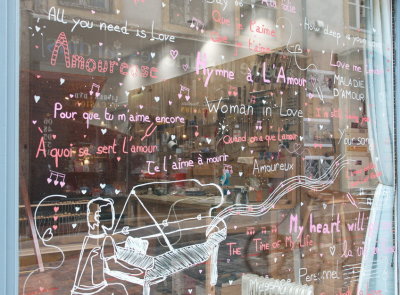 All you need is Love
Que je t'aime
je t'aime
how deep is your
Amoureuse
Love me
Hymne à L'Amour
MALADIE
D'AMOUR
Pour que tu m'aime encore
Woman in Love
A quoi se sert L'amour
Quand on a que L'amour
Je t'aime à mourir
Amoureux
Your song
My heart will
The Time of My Life
Personne